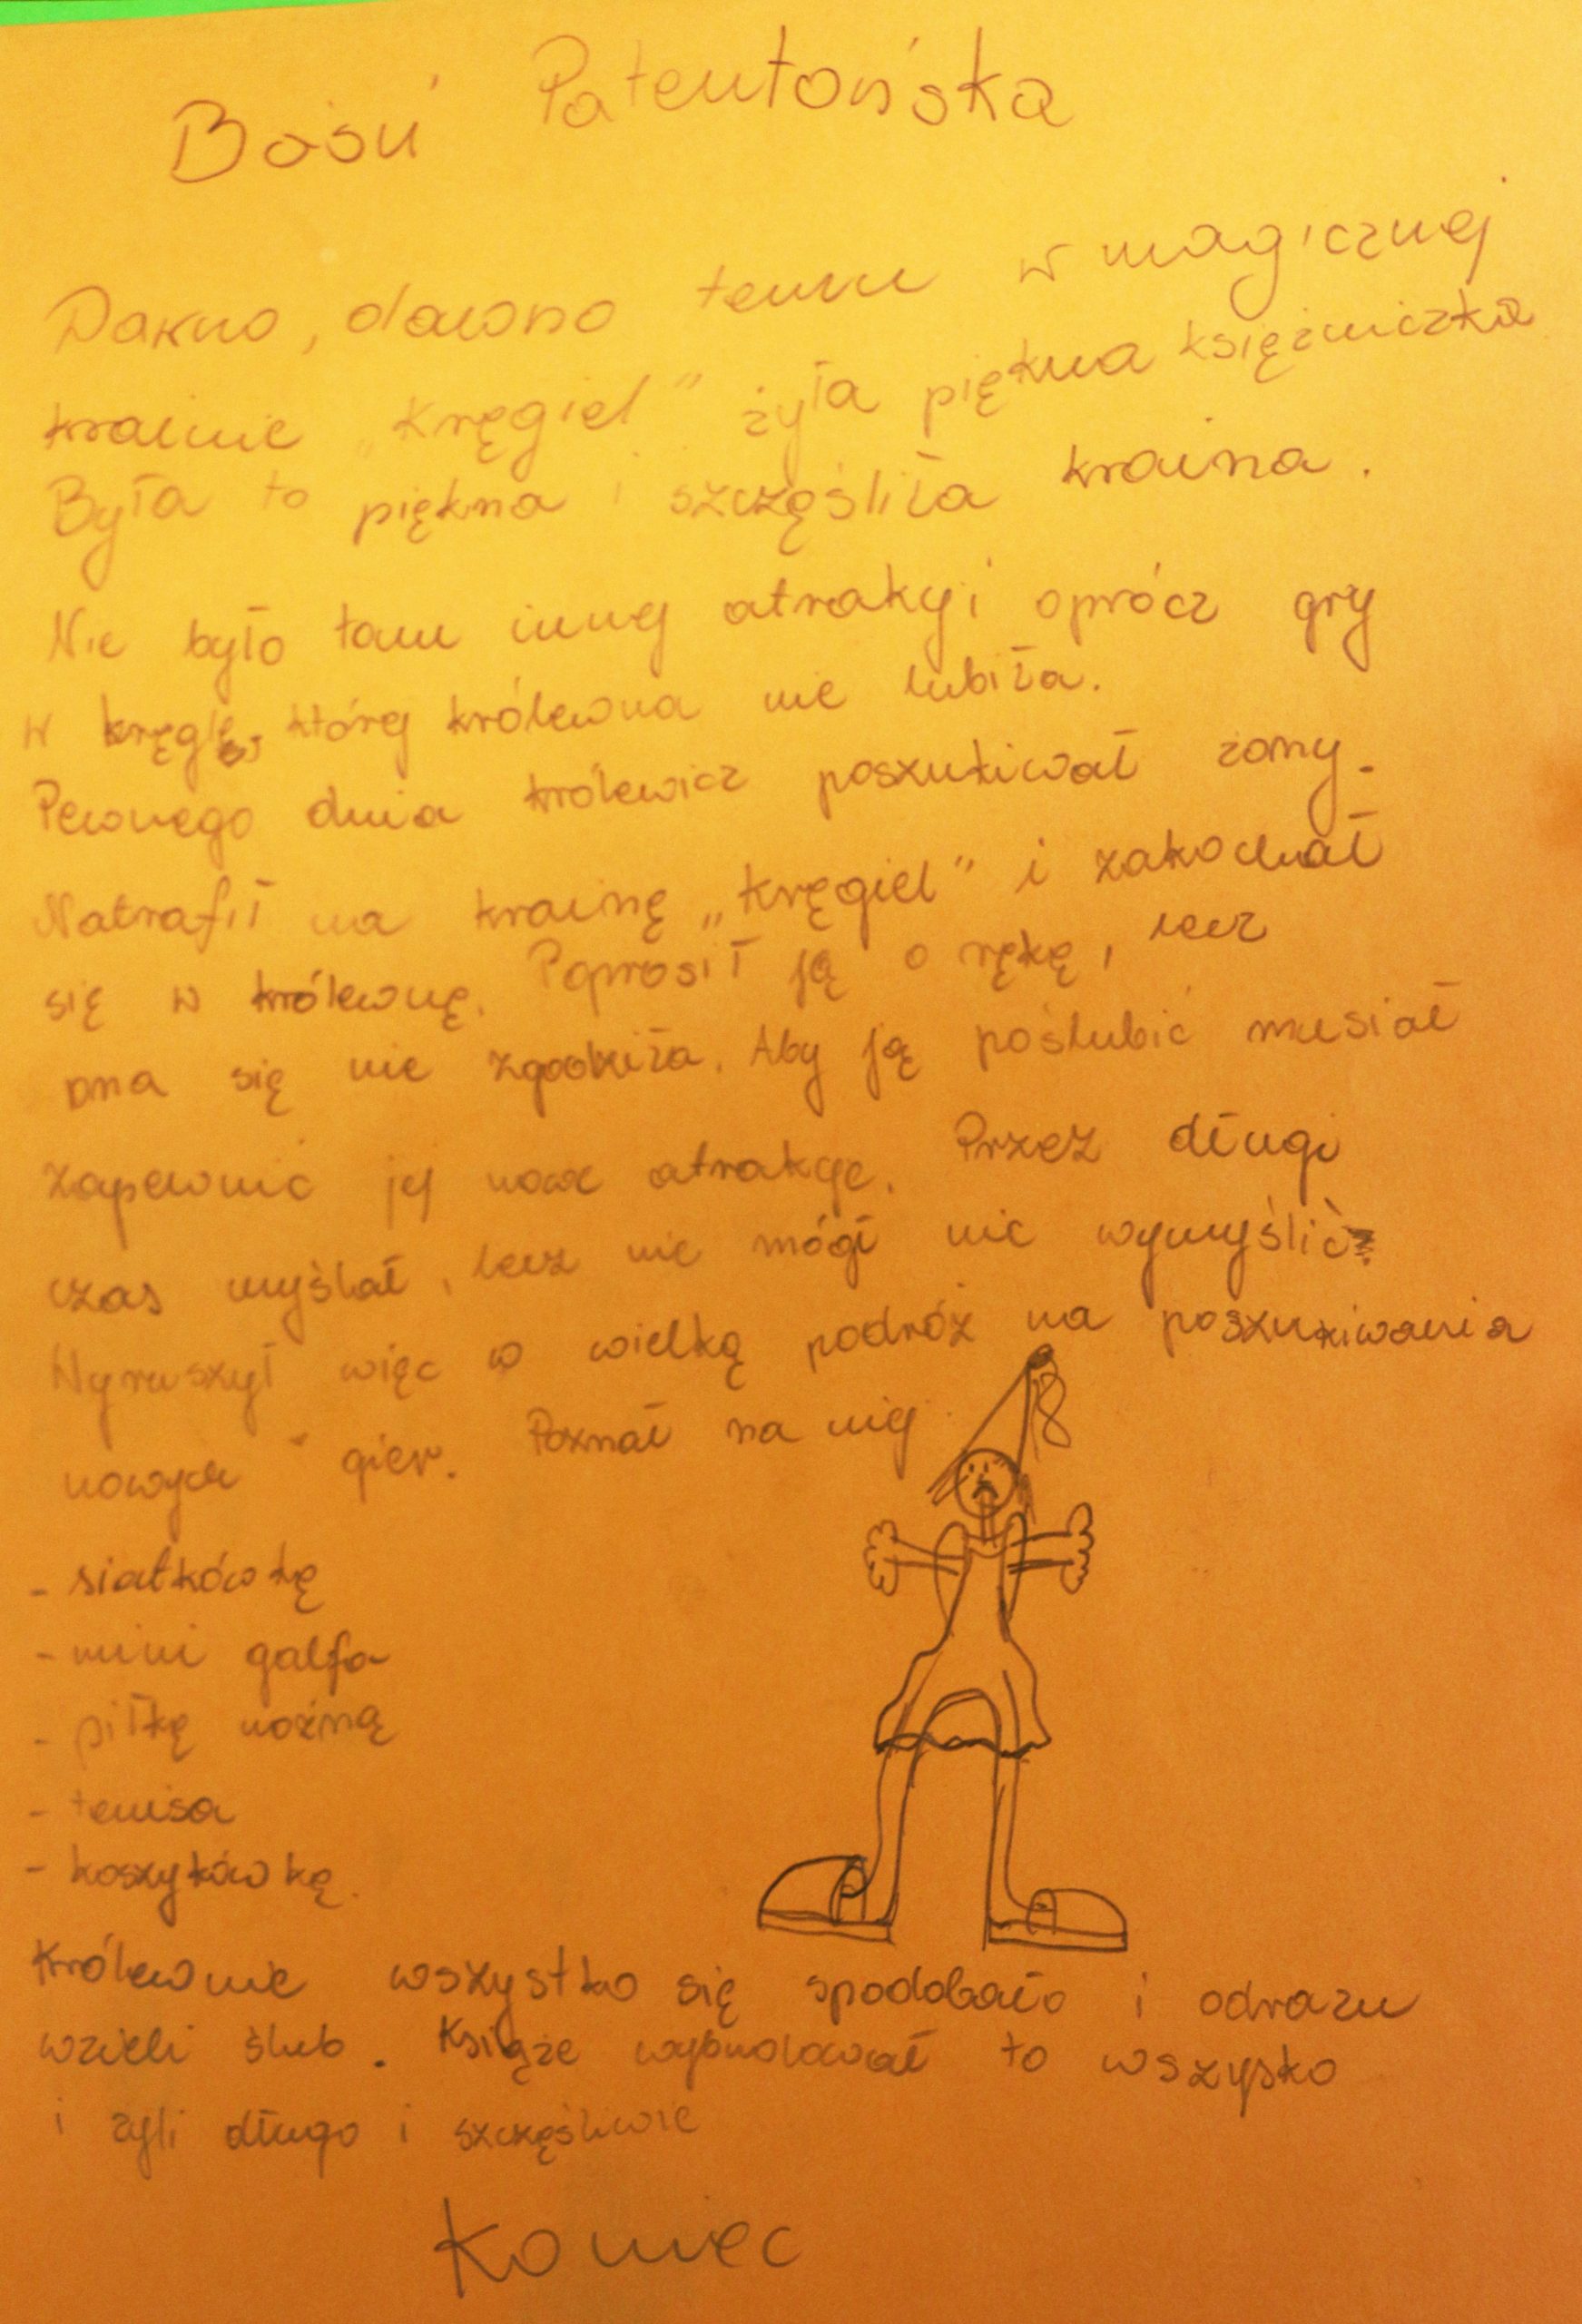 Baśń Patentońska
Dawno, dawno temu w magicznej
krainie „Kręgiel" żyła piękna księżniczka
Była to piękna i szczęśliła kraina.
Nie było tam innej atrakyji oprócz gry
w kręgle, której królewna nie lubiła.
Pewnego dnia królewicz poszukiwał żony.
Natrafił na krainę „Kręgiel" i zakochał
się w królewnę. Poprosił ją o rękę, lecz
ona się nie zgodziła. Aby ją poślubić musiał
zapewnic jej nowe atrakcje. Przez długi
czas myślał, lecz nie mógł nic wymyślić
Wyruszył więc w wielką podróż na poszukiwania
nowych gier. Poznał na niej
- siatkówkę
- mini galfa
- piłkę nożną
- tenisa
- koszykówkę.
Królewnie wszystko się spodobało i odrazu
wzieli ślub. Książe wybudował to wszysko
i żyli długo i szczęśliwie
Koniec